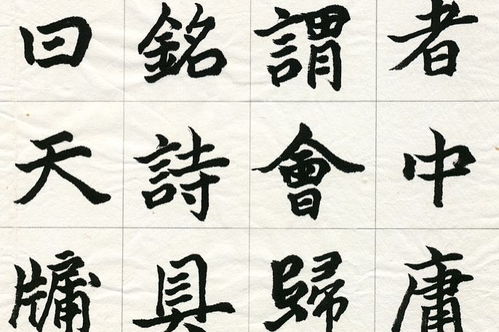 者中庸
謂會歸
銘詩具
曰天牖